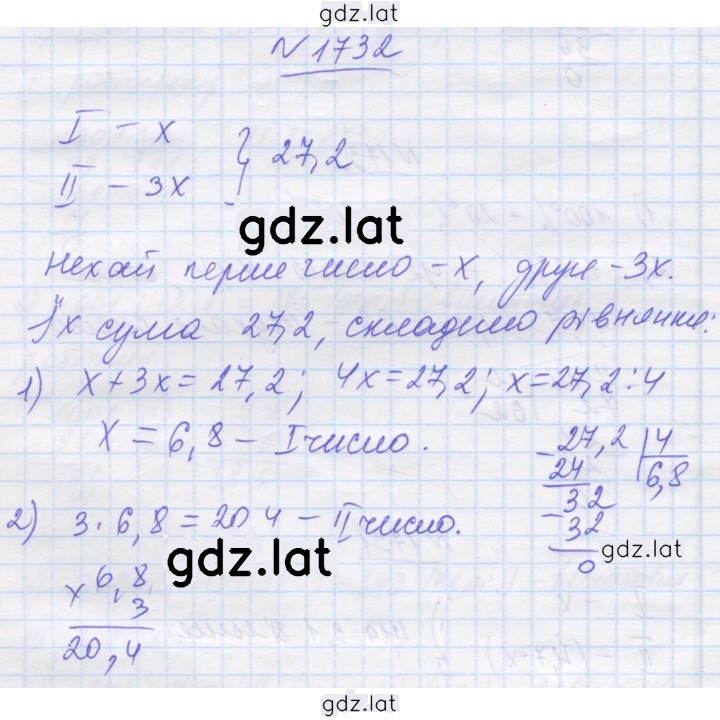 gdz.lat
N 1732
I – x
II – 3x } 27,2
gdz.lat
Нехай перше число – x, друге – 3x.
Їх сума 27,2, складемо рівняння:
1) x + 3x = 27,2; 4x = 27,2; x = 27,2 : 4
x = 6,8 – I число.
27,2 | 4
24 6,8
32
32
0
gdz.lat
2) 3 · 6,8 = 20 4 – II число.
gdz.lat
x 6,8
3
20,4
gdz.lat